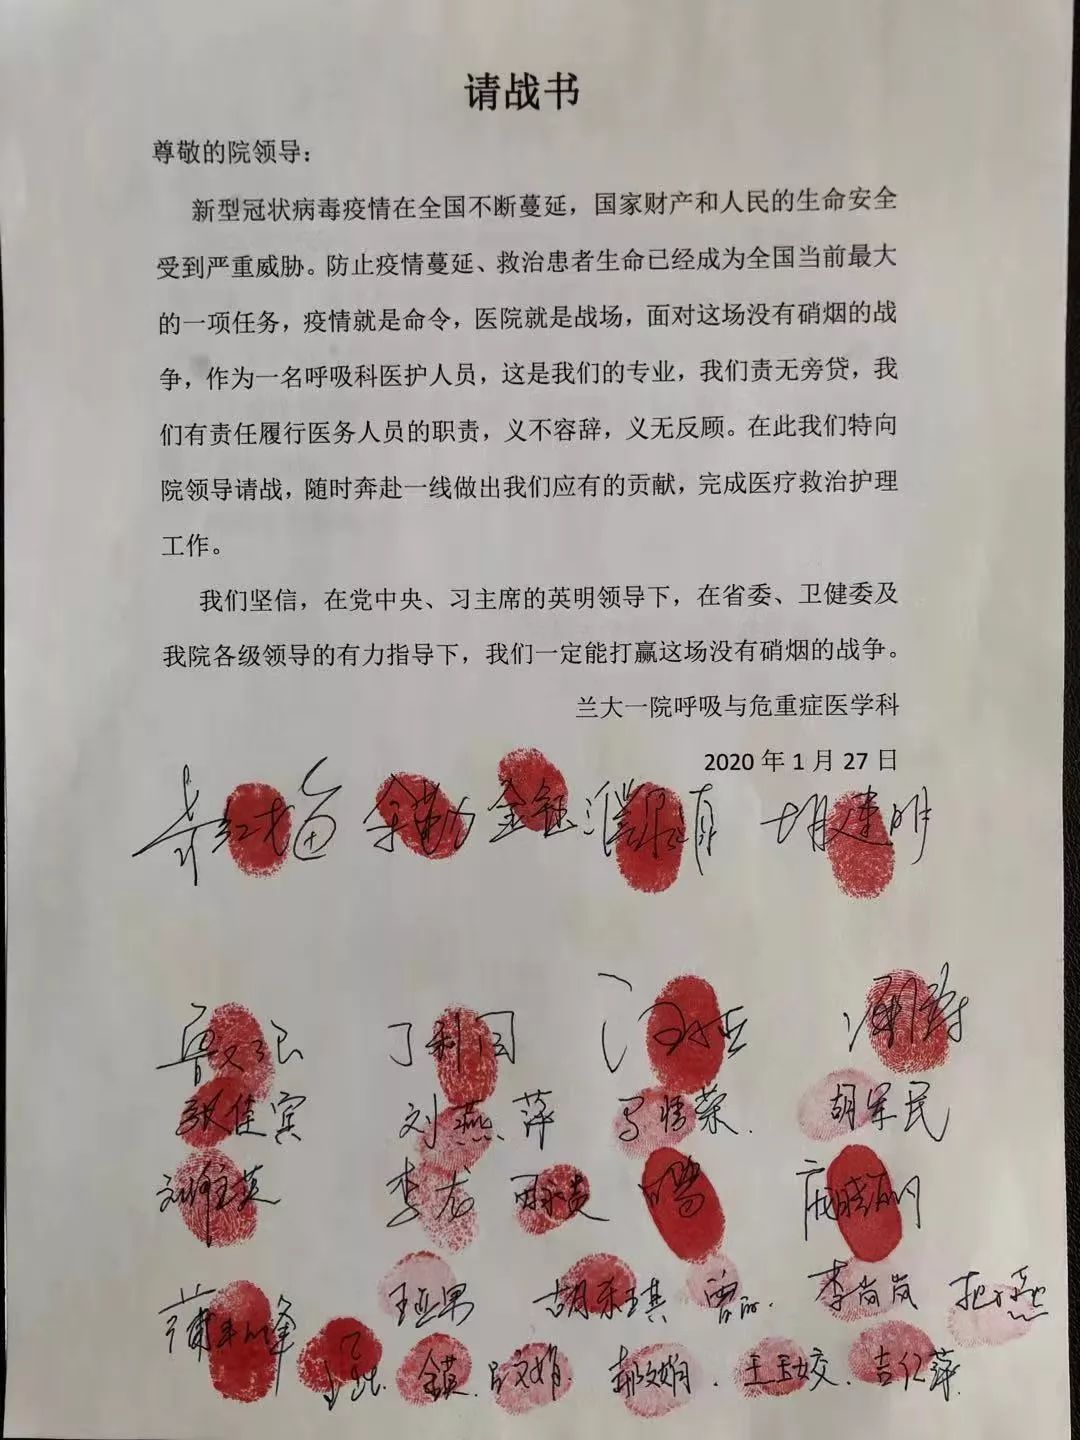 请战书
尊敬的院领导：
新型冠状病毒疫情在全国不断蔓延，国家财产和人民的生命安全
受到严重威胁。防止疫情蔓延、救治患者生命已经成为全国当前最大
的一项任务，疫情就是命令，医院就是战场，面对这场没有硝烟的战
争，作为一名呼吸科医护人员，这是我们的专业，我们责无旁贷，我
们有责任履行医务人员的职责，义不容辞，义无反顾。在此我们特向
院领导请战，随时奔赴一线做出我们应有的贡献，完成医疗救治护理
工作。
我们坚信，在党中央、习主席的英明领导下，在省委、卫健委及
我院各级领导的有力指导下，我们一定能打赢这场没有硝烟的战争。
兰大一院呼吸与危重症医学科
2020 年 1 月 27 日
余勤 金钰 胡建明
丁利国
张佳宾 刘燕萍 胡军民
李龙 庞晓鹏
王亚男 李岗岚
吕文娟 郝文娟. 王玉姣. 吉仁萍.